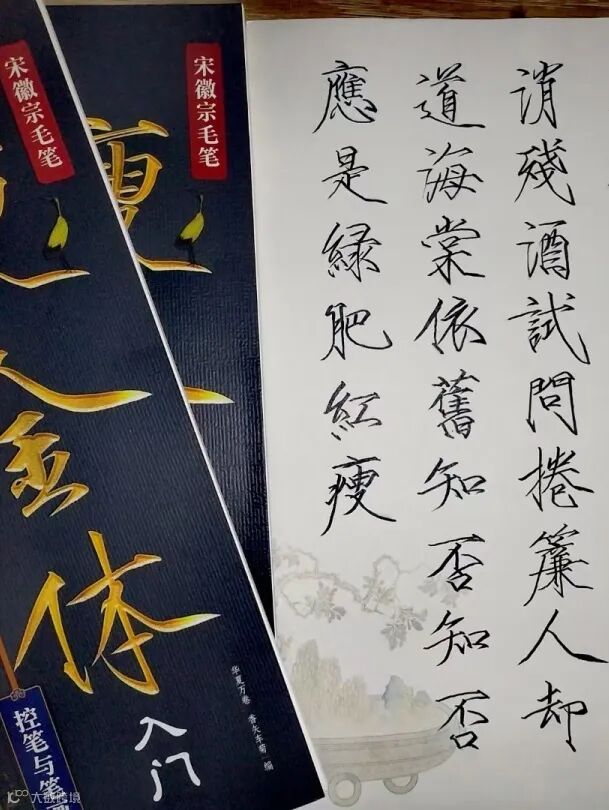 消殘酒試問捲簾人却
道海棠依舊知否知否
應是緑肥紅瘦
宋徽宗毛笔
宋徽宗毛笔
金体
入门
控笔与笔
华夏万卷
编
大数跨境